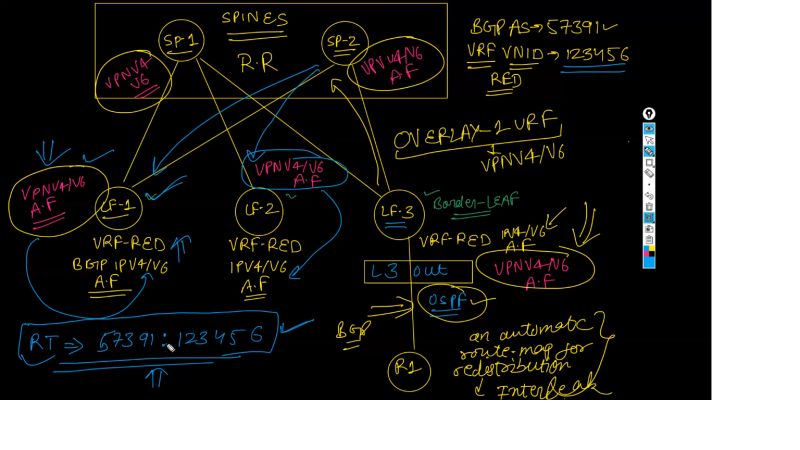 SPINES
SP-1
SP-2
R.R
VPNV4
V6
VPVV4/V6
A.F
BGP AS→57391
VRF VNID→123456
RED
OVERLAY-1 VRF
VPNV4/V6
VPNV4/V6
A.F
LF-1
VPNV4/V6
A.F
LF-2
LF-3
Border-LEAF
VRF-RED
BGP IPV4/V6
A.F
VRF-RED
IPV4/V6
A.F
VRF-RED IPV4/V6
A.F
VPNV4/V6
A.F
L3 out
OSPF
BGP
RT ⇒ 57391:123456
R1
an automatic
route-map for
redistribution
Interleak